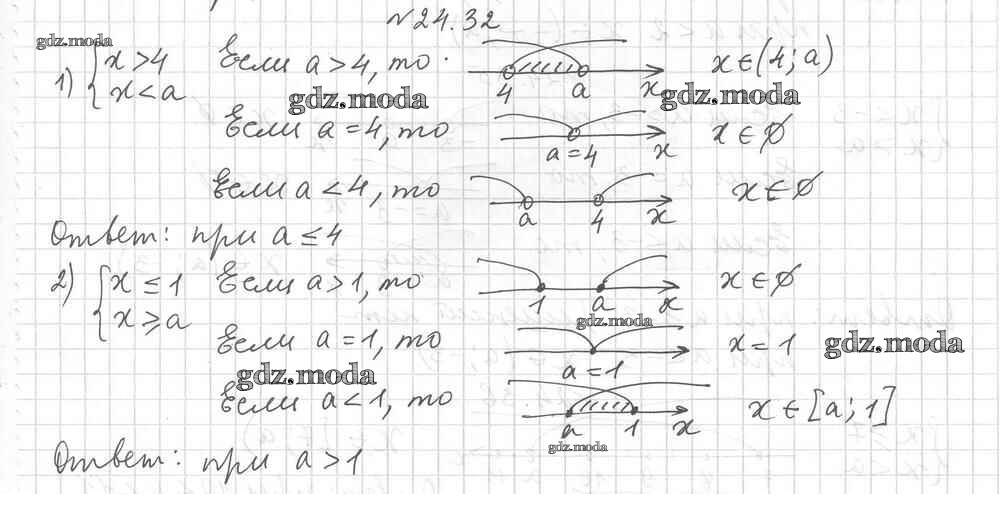 №24.32
gdz.moda
1) { x > 4 Если a > 4, то 4 a x x ∈ (4; a)
x < a gdz.moda gdz.moda
Если a = 4, то a = 4 x x ∈ ∅
Если a < 4, то a 4 x x ∈ ∅
Ответ: при a ≤ 4
2) { x ≤ 1 Если a > 1, то 1 a x x ∈ ∅
x ⩾ a gdz.moda
Если a = 1, то a = 1 x = 1 gdz.moda
gdz.moda
Если a < 1, то a 1 x x ∈ [a; 1]
gdz.moda
Ответ: при a > 1